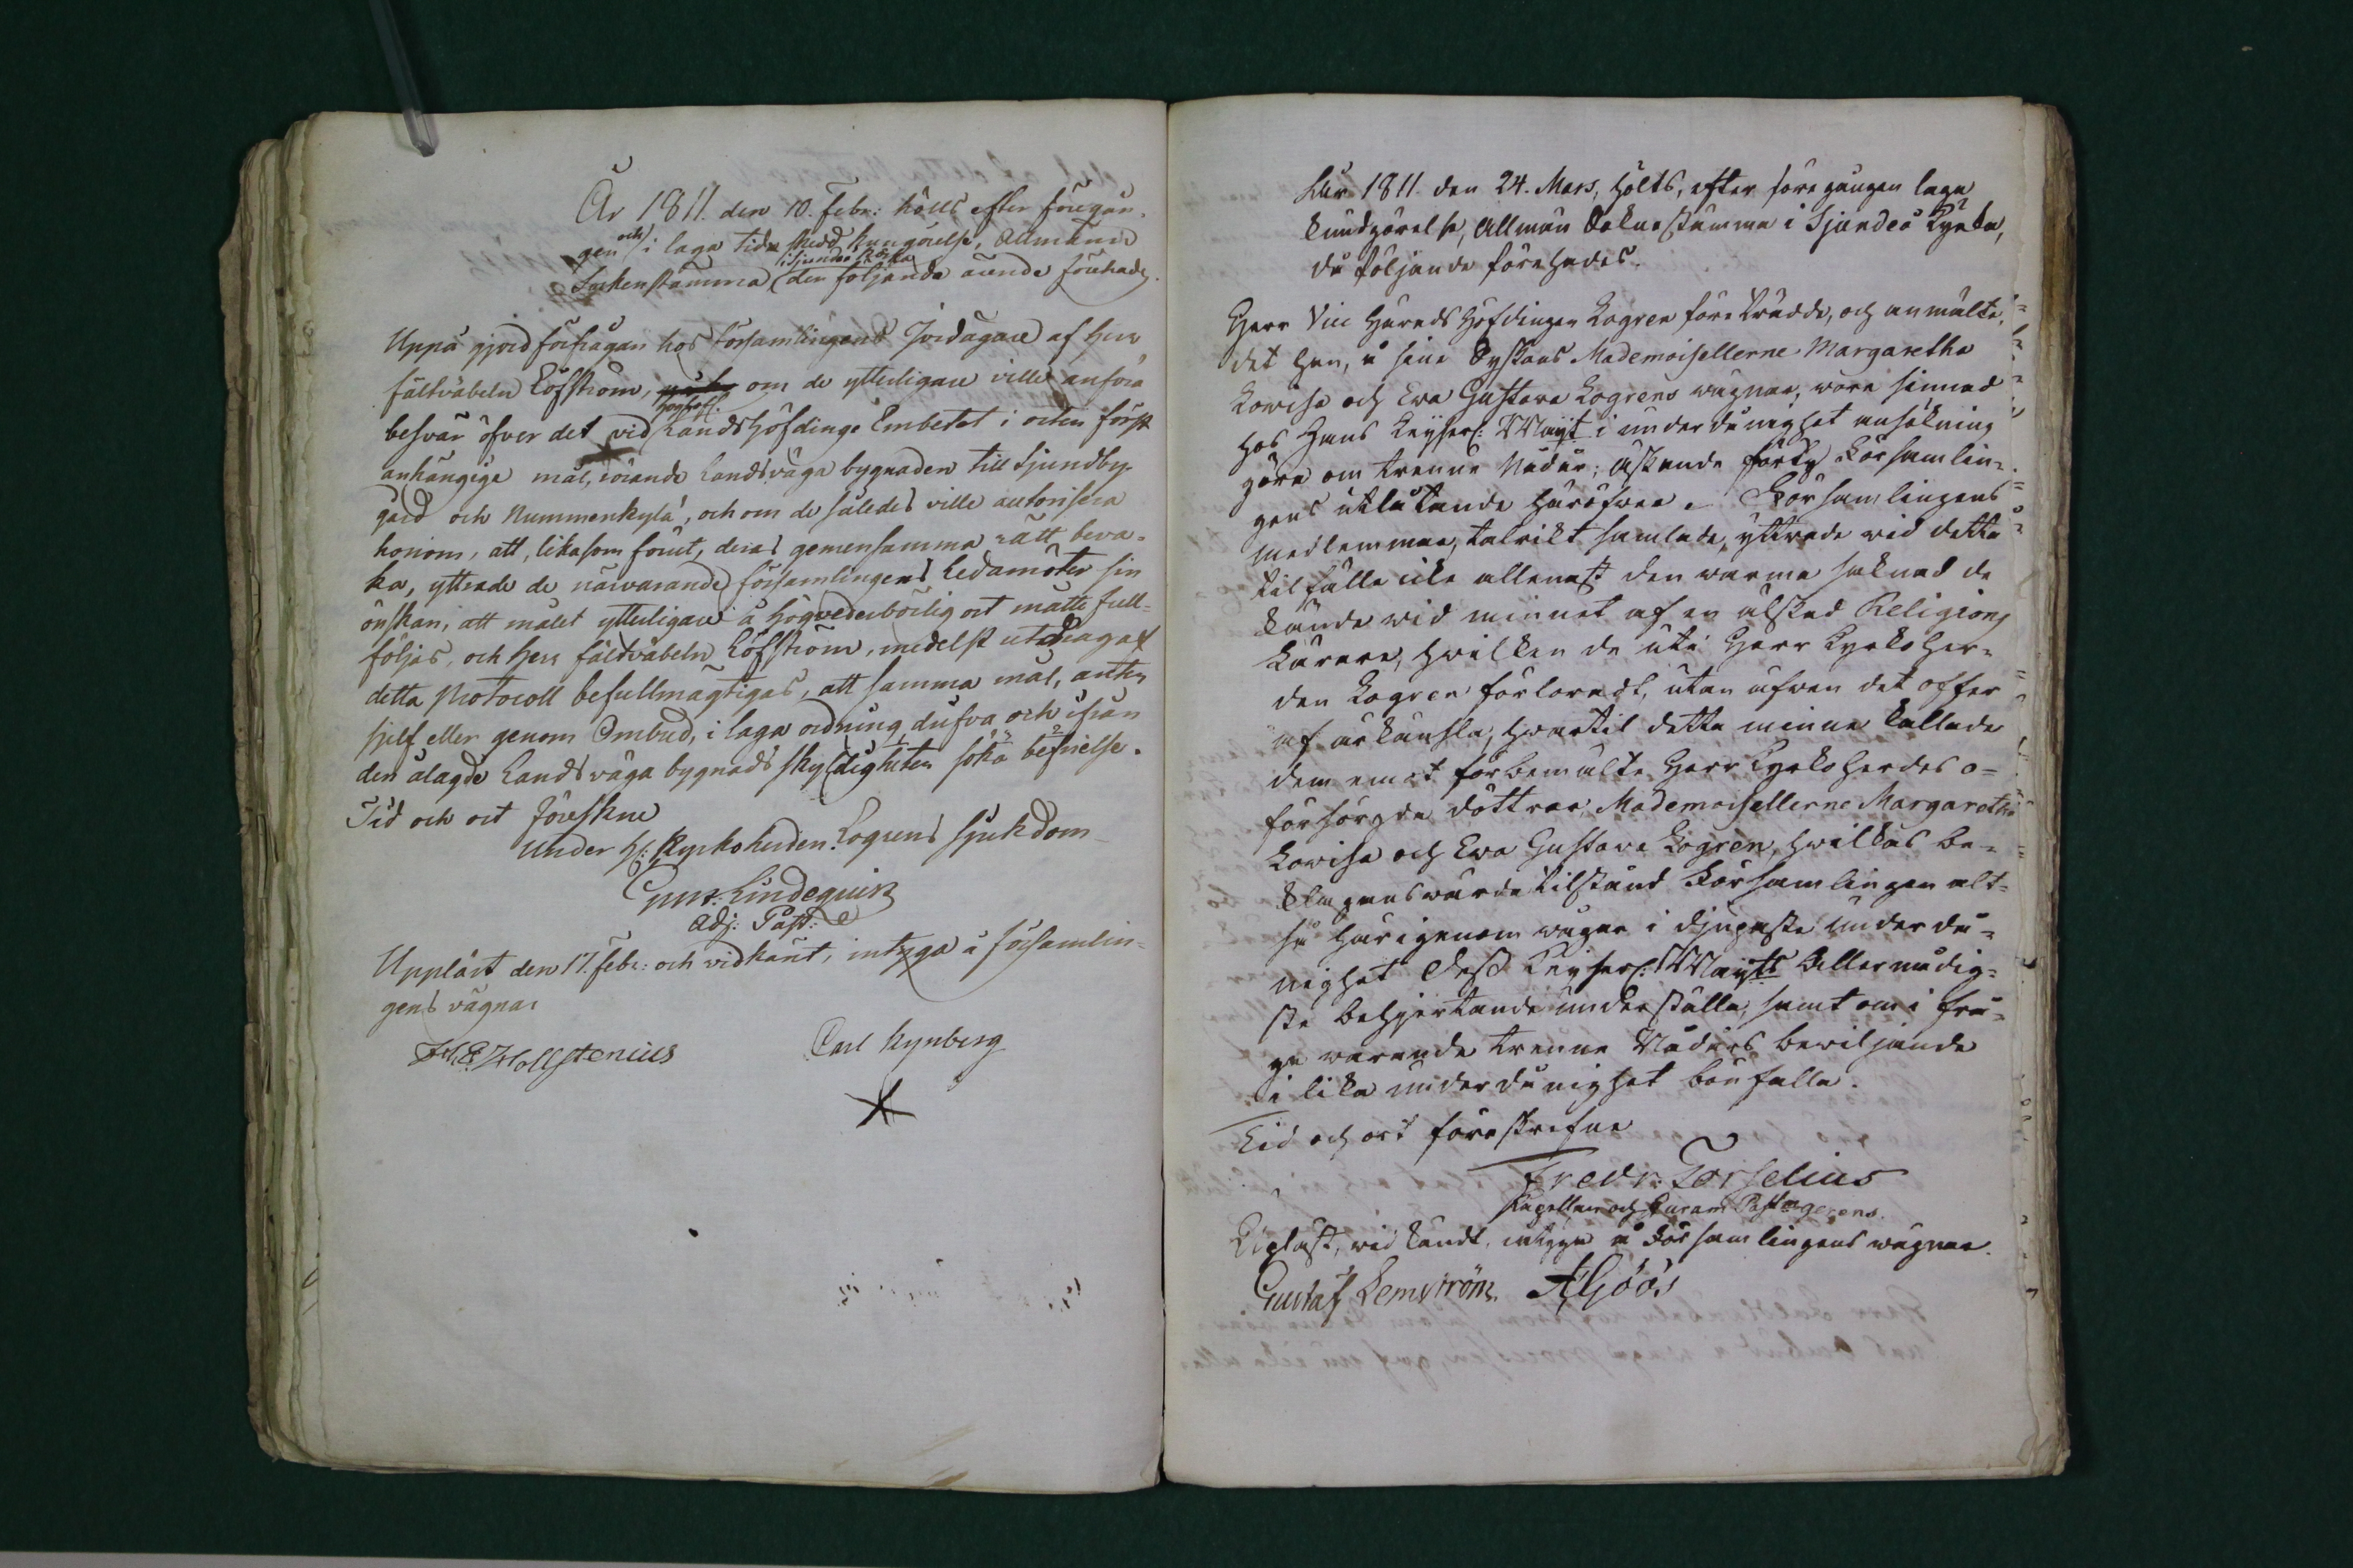 År 1811. den 10. Febr: hölls efter föregån-
gen och i laga tid skedd kungörelse, Allmänn
Sockenstämma i Sjundeå Kyrka, der följande ärende förehades.
Uppå gjord förfrågan hos Församlingens Jordägare af Herr
fältväbeln Löfström, om de ytterligare ville anföra
besvär öfver det vid LandsHöfdinge Embetet i orten först
anhängige mål, rörande Landsväga bygnaden till Sjundby-
gård och Nummenkylä, och om de således ville autorisera
honom, att, likasom förut, deras gemensamma rätt beva-
ka, yttrade de närvarande församlingens Ledamöter sin
önskan, att målet ytterligare å högvederbörlig ort måtte full-
följas, och Herr fältväbeln Löfström, medelst utdrag af
detta Protocoll befullmägtigas, att samma mål, anten
sjelf eller genom Ombud, i laga ordning, drifva och ifrån
den ålagde Landsväga bygnads skyldigheten söka befrielse.
Tid och ort Föreskrne
Under H: Kyrkoherden Logrens sjukdom
Gust: Lindequist
Adj: Past:
Uppläst den 17. Febr: och vidkänt, intyga å församlin-
gens vägnar
Hollstenius
Carl Rynberg
År 1811. den 24. Mars, hölts, efter föregången laga
kundgörelse, Allmän Soknestämma i Sjundeå Kyrka,
då följande förehades.
Herr Vice HäradsHöfdingen Logren företrädde, och anmälte,
det han, å sine Syskons Mademoisellerne Margaretha
Lovisa och Eva Gustava Logrens wägnar, wore sinnad
hos Hans Keyserl: Mayt i underdånighet ansökning
göra om trenne Nådår; äskande förty Församlin-
gens utlåtande häröfwer. Församlingens
medlemmar, talrikt samlade, yttrade wid detta
tilfälle icke allenast den warma saknad de
kände wid minnet af en älskad Religions
Lärare, hwilken de uti Herr Kyrkoher-
den Logren förloradt, utan äfwen det offer
af ärkänsla, hwartil detta minne kallade
dem emot förbemälte Herr Kyrkoherdes o-
försörgda döttrar, Mademoisellerne Margaretha
Lovisa och Eva Gustava Logren, hwilkas be-
klagenswärda tilstånd Församlingen alt-
så härigenom wågar i djupaste underdå-
nighet Dess Keyserl: Mayts Allernådig-
ste behjertande underställa, samt om i frå-
ga warande trenne Nådårs bewiljande
i lika underdånighet bönfalla.
Tid och ort förestrefne
Fredr: Forselius
Kapellan och Curam Past: gerens.
Uplåst, wid kändt, intyga å Församlingens wägnar.
Gustaf Lemström A Göös